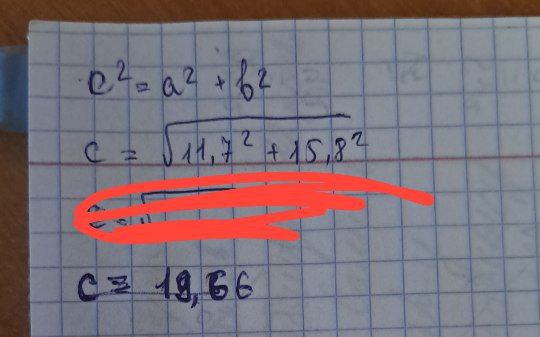 c² = a² + b²
c = √11,7² + 15,8²
c ≈ 19,66